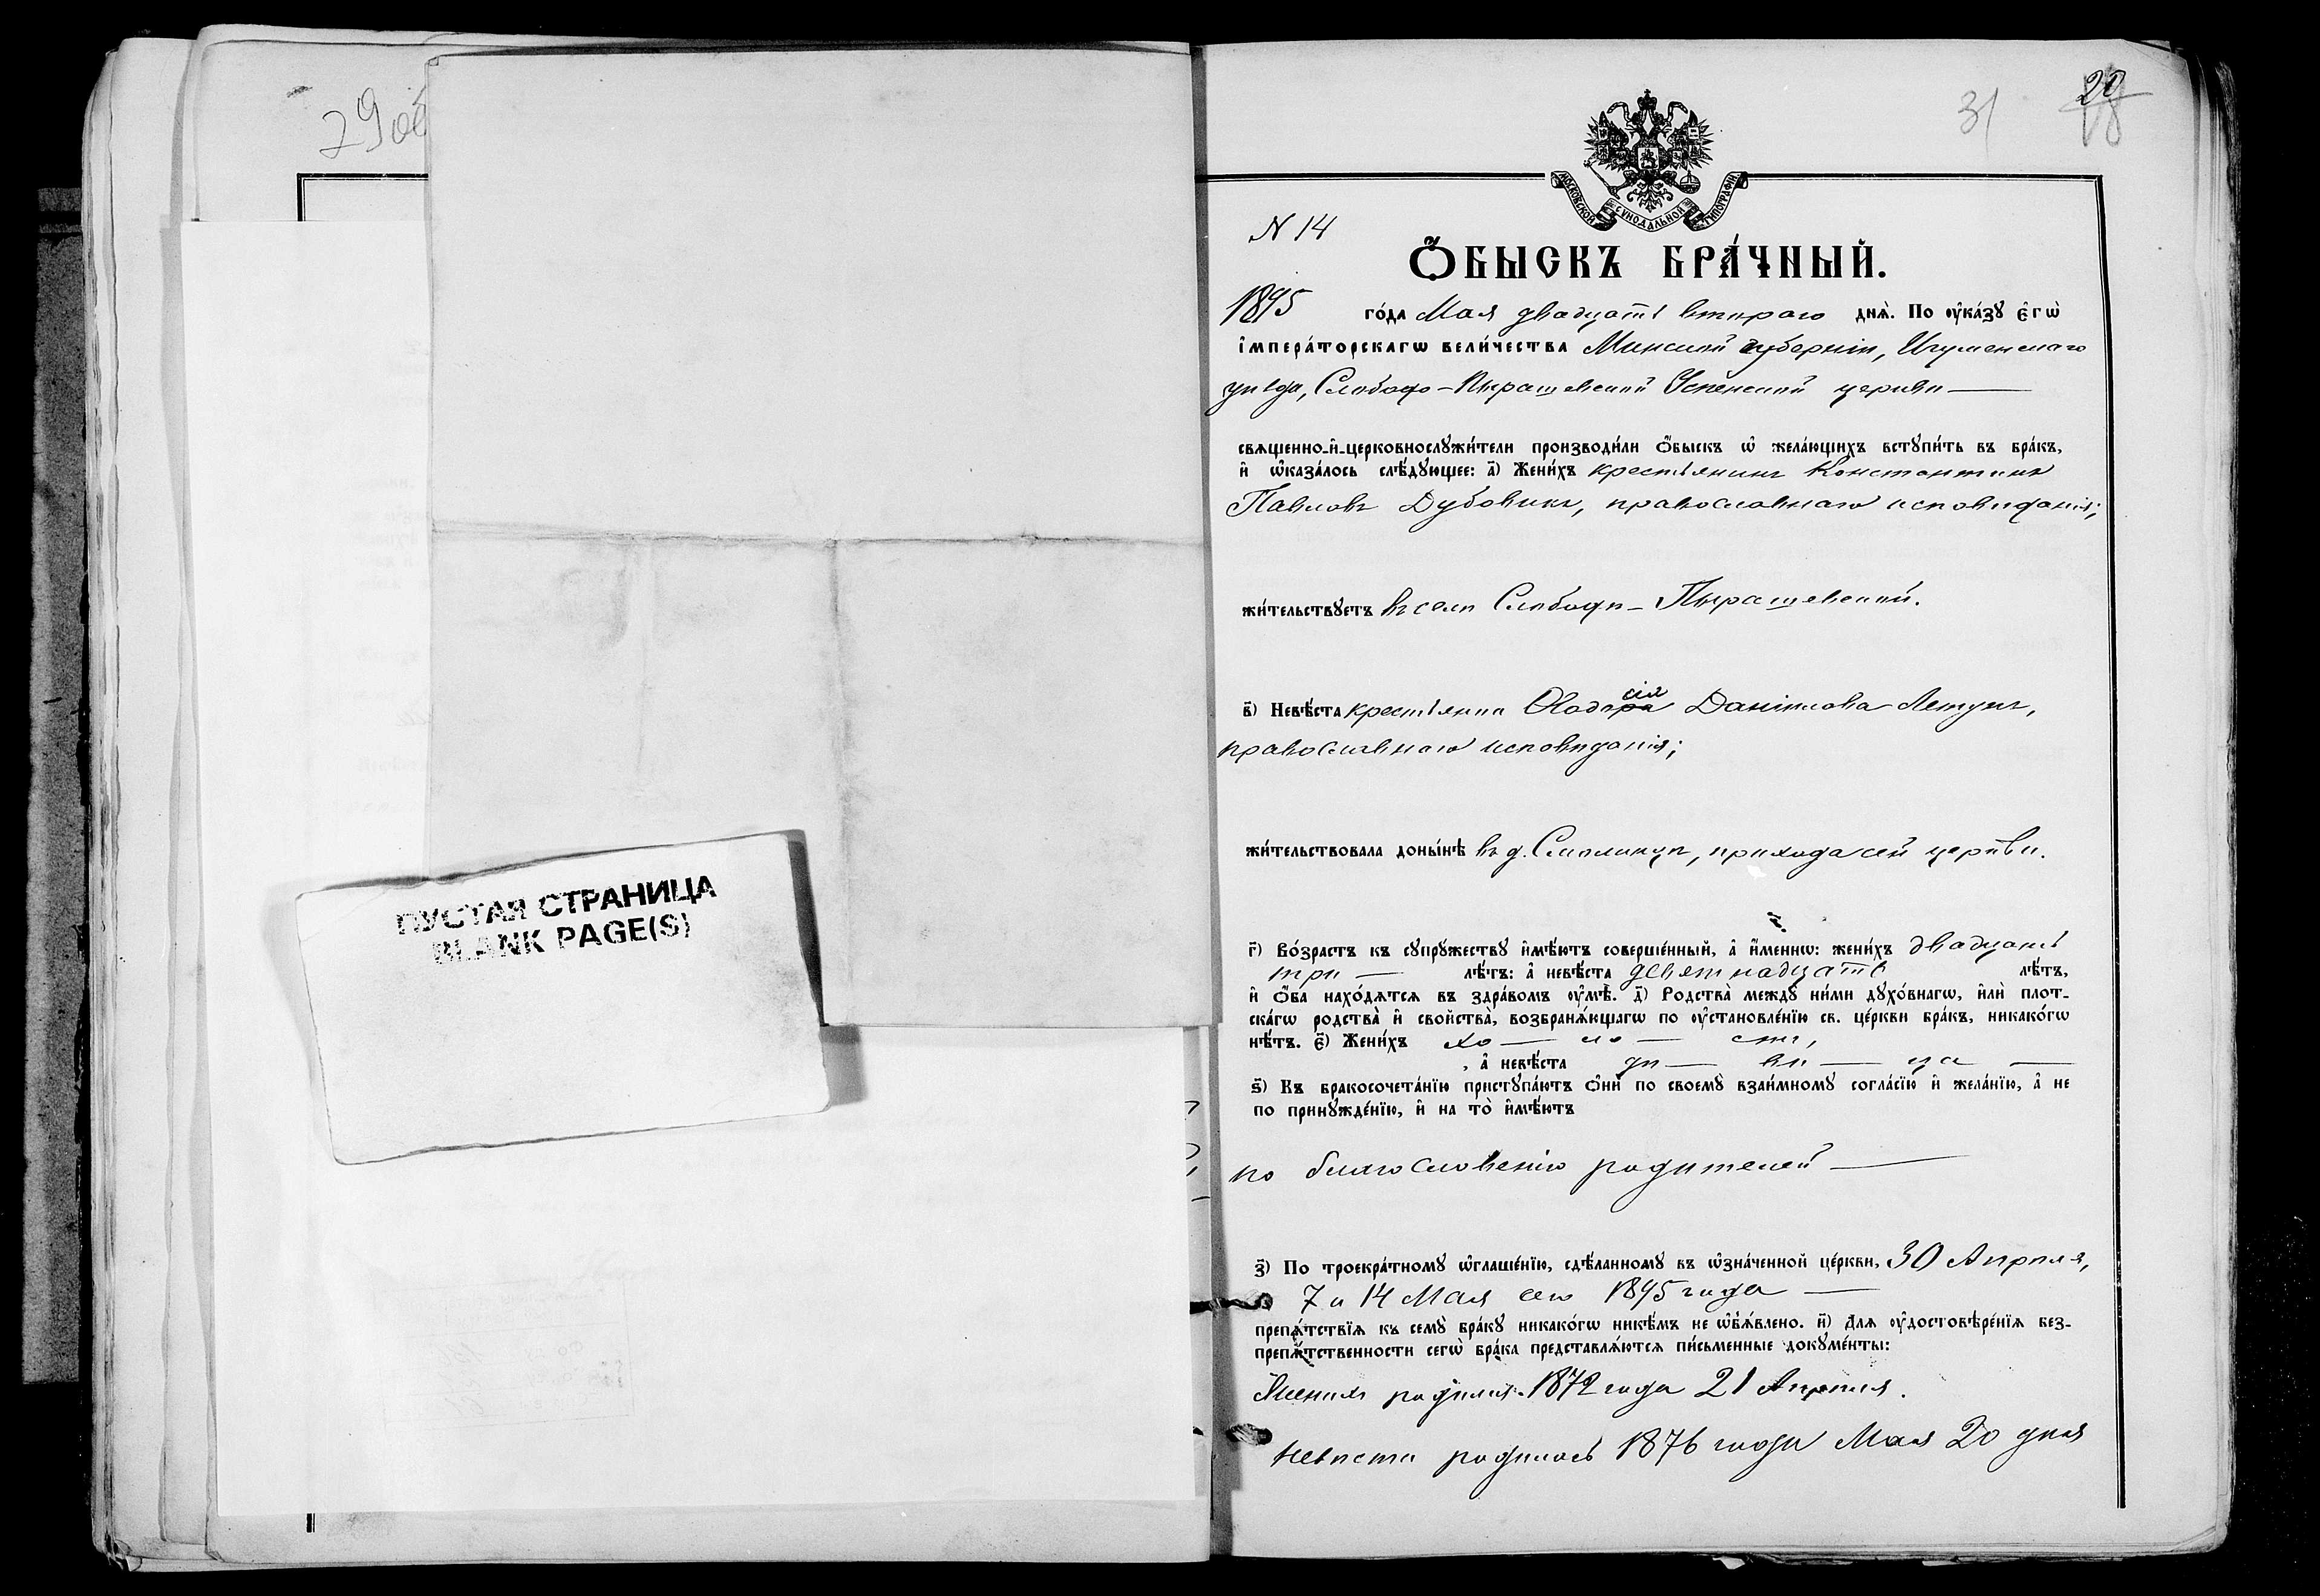 29 об
ПУСТАЯ СТРАНИЦА
BLANK PAGE(S)
31
20
18
МОСКОВСКОЙ СѴНОДАЛЬНОЙ ТИПОГРАФІИ
N 14
Ѻ҆БЫСКЪ БРА́ЧНЫЙ.
1895 го́да Мая двадцать втораго днѧ̀. По ᲂу҆ка́зꙋ є҆гѡ̀
і҆мпера́торскагѡ вели́чества Минской губерніи, Игуменскаго
уѣзда, Слободо-Пырашевской Успенской церкви —
свѧщенно-и҆-церковнослꙋжи́тели производи́ли ѻ҆́быскъ ѡ҆ жела́ющихъ встꙋпи́ть въ бра́къ,
и҆ ѡ҆каза́лось слѣ́дꙋющее: а҃) Жени́хъ крестьянинъ Константинъ
Павловъ Дубовикъ, православнаго исповѣданія;
жи́тельствꙋетъ въ селѣ Слободѣ-Пырашевской.
в҃) Невѣ́ста крестьянка сія Даніилова Летунъ,
православнаго исповѣданія;
жи́тельствовала доны́нѣ въ д. прихода сей церкви.
г҃) Во́зрастъ къ сꙋпрꙋ́жествꙋ и҆мѣ́ютъ соверше́нный, а҆ и҆́меннѡ: жени́хъ двадцать
три — лѣ́тъ: а҆ невѣ́ста девятнадцать лѣ́тъ,
и҆ ѻ҆́ба нахо́дѧтсѧ въ здра́вомъ ᲂу҆мѣ̀. д҃) Родства̀ междꙋ̀ ни́ми дꙋхо́внагѡ, и҆лѝ плот-
ска́гѡ родства̀ и҆ свойства̀, возбранѧ́ющагѡ по ᲂу҆становле́нїю св. це́ркви бра́къ, никако́гѡ
нѣ́тъ. є҃) Жени́хъ хо — ло — стъ,
, а҆ невѣ́ста дѣ — ви — ца —
ѕ҃) Къ бракосочета́нїю пристꙋпа́ютъ ѻ҆нѝ по своемꙋ̀ взаи́мномꙋ согла́сїю и҆ жела́нїю, а҆ не
по принꙋжде́нїю, и҆ на то̀ и҆мѣ́ютъ
по благословенію родителей —
з҃) По троекра́тномꙋ ѡ҆глаше́нїю, сдѣ́ланномꙋ въ ѡ҆зна́ченной це́ркви, 30 Апрѣля,
7 и 14 Мая сего 1895 года —
препѧ́тствїѧ къ семꙋ̀ бра́кꙋ никако́гѡ никѣ́мъ не ѡ҆б̾ѧ́влено. и҃) Длѧ ᲂу҆достовѣре́нїѧ без-
препѧ́тственности сегѡ̀ бра́ка представлѧ́ютсѧ пи́сьменные докꙋме́нты:
Женихъ родился 1872 года 21 Апрѣля.
Невѣста родилась 1876 года Мая 20 дня